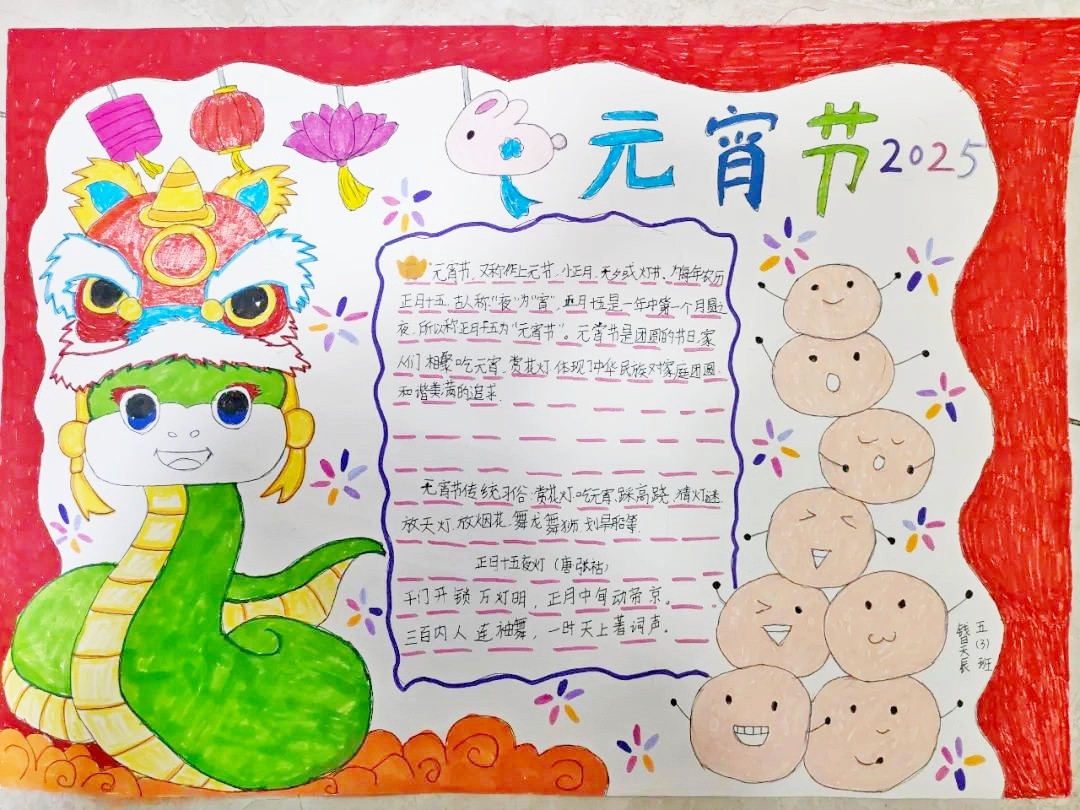 元宵节 2025
元宵节，又称作上元节、小正月、元夕或灯节，为每年农历
正月十五，古人称"夜"为"宵"，正月十五是一年中第一个月圆之
夜，所以称正月十五为"元宵节"。元宵节是团圆的节日，家
人们相聚吃元宵，赏花灯体现了中华民族对家庭团圆
和谐美满的追求。
元宵节传统习俗：赏花灯、吃元宵、踩高跷、猜灯谜
放天灯、放烟花、舞龙舞狮、划旱船等
正月十五夜灯（唐·张祜）
千门开锁万灯明，正月中旬动帝京。
三百内人连袖舞，一时天上著词声。
五（3）班
钱天辰